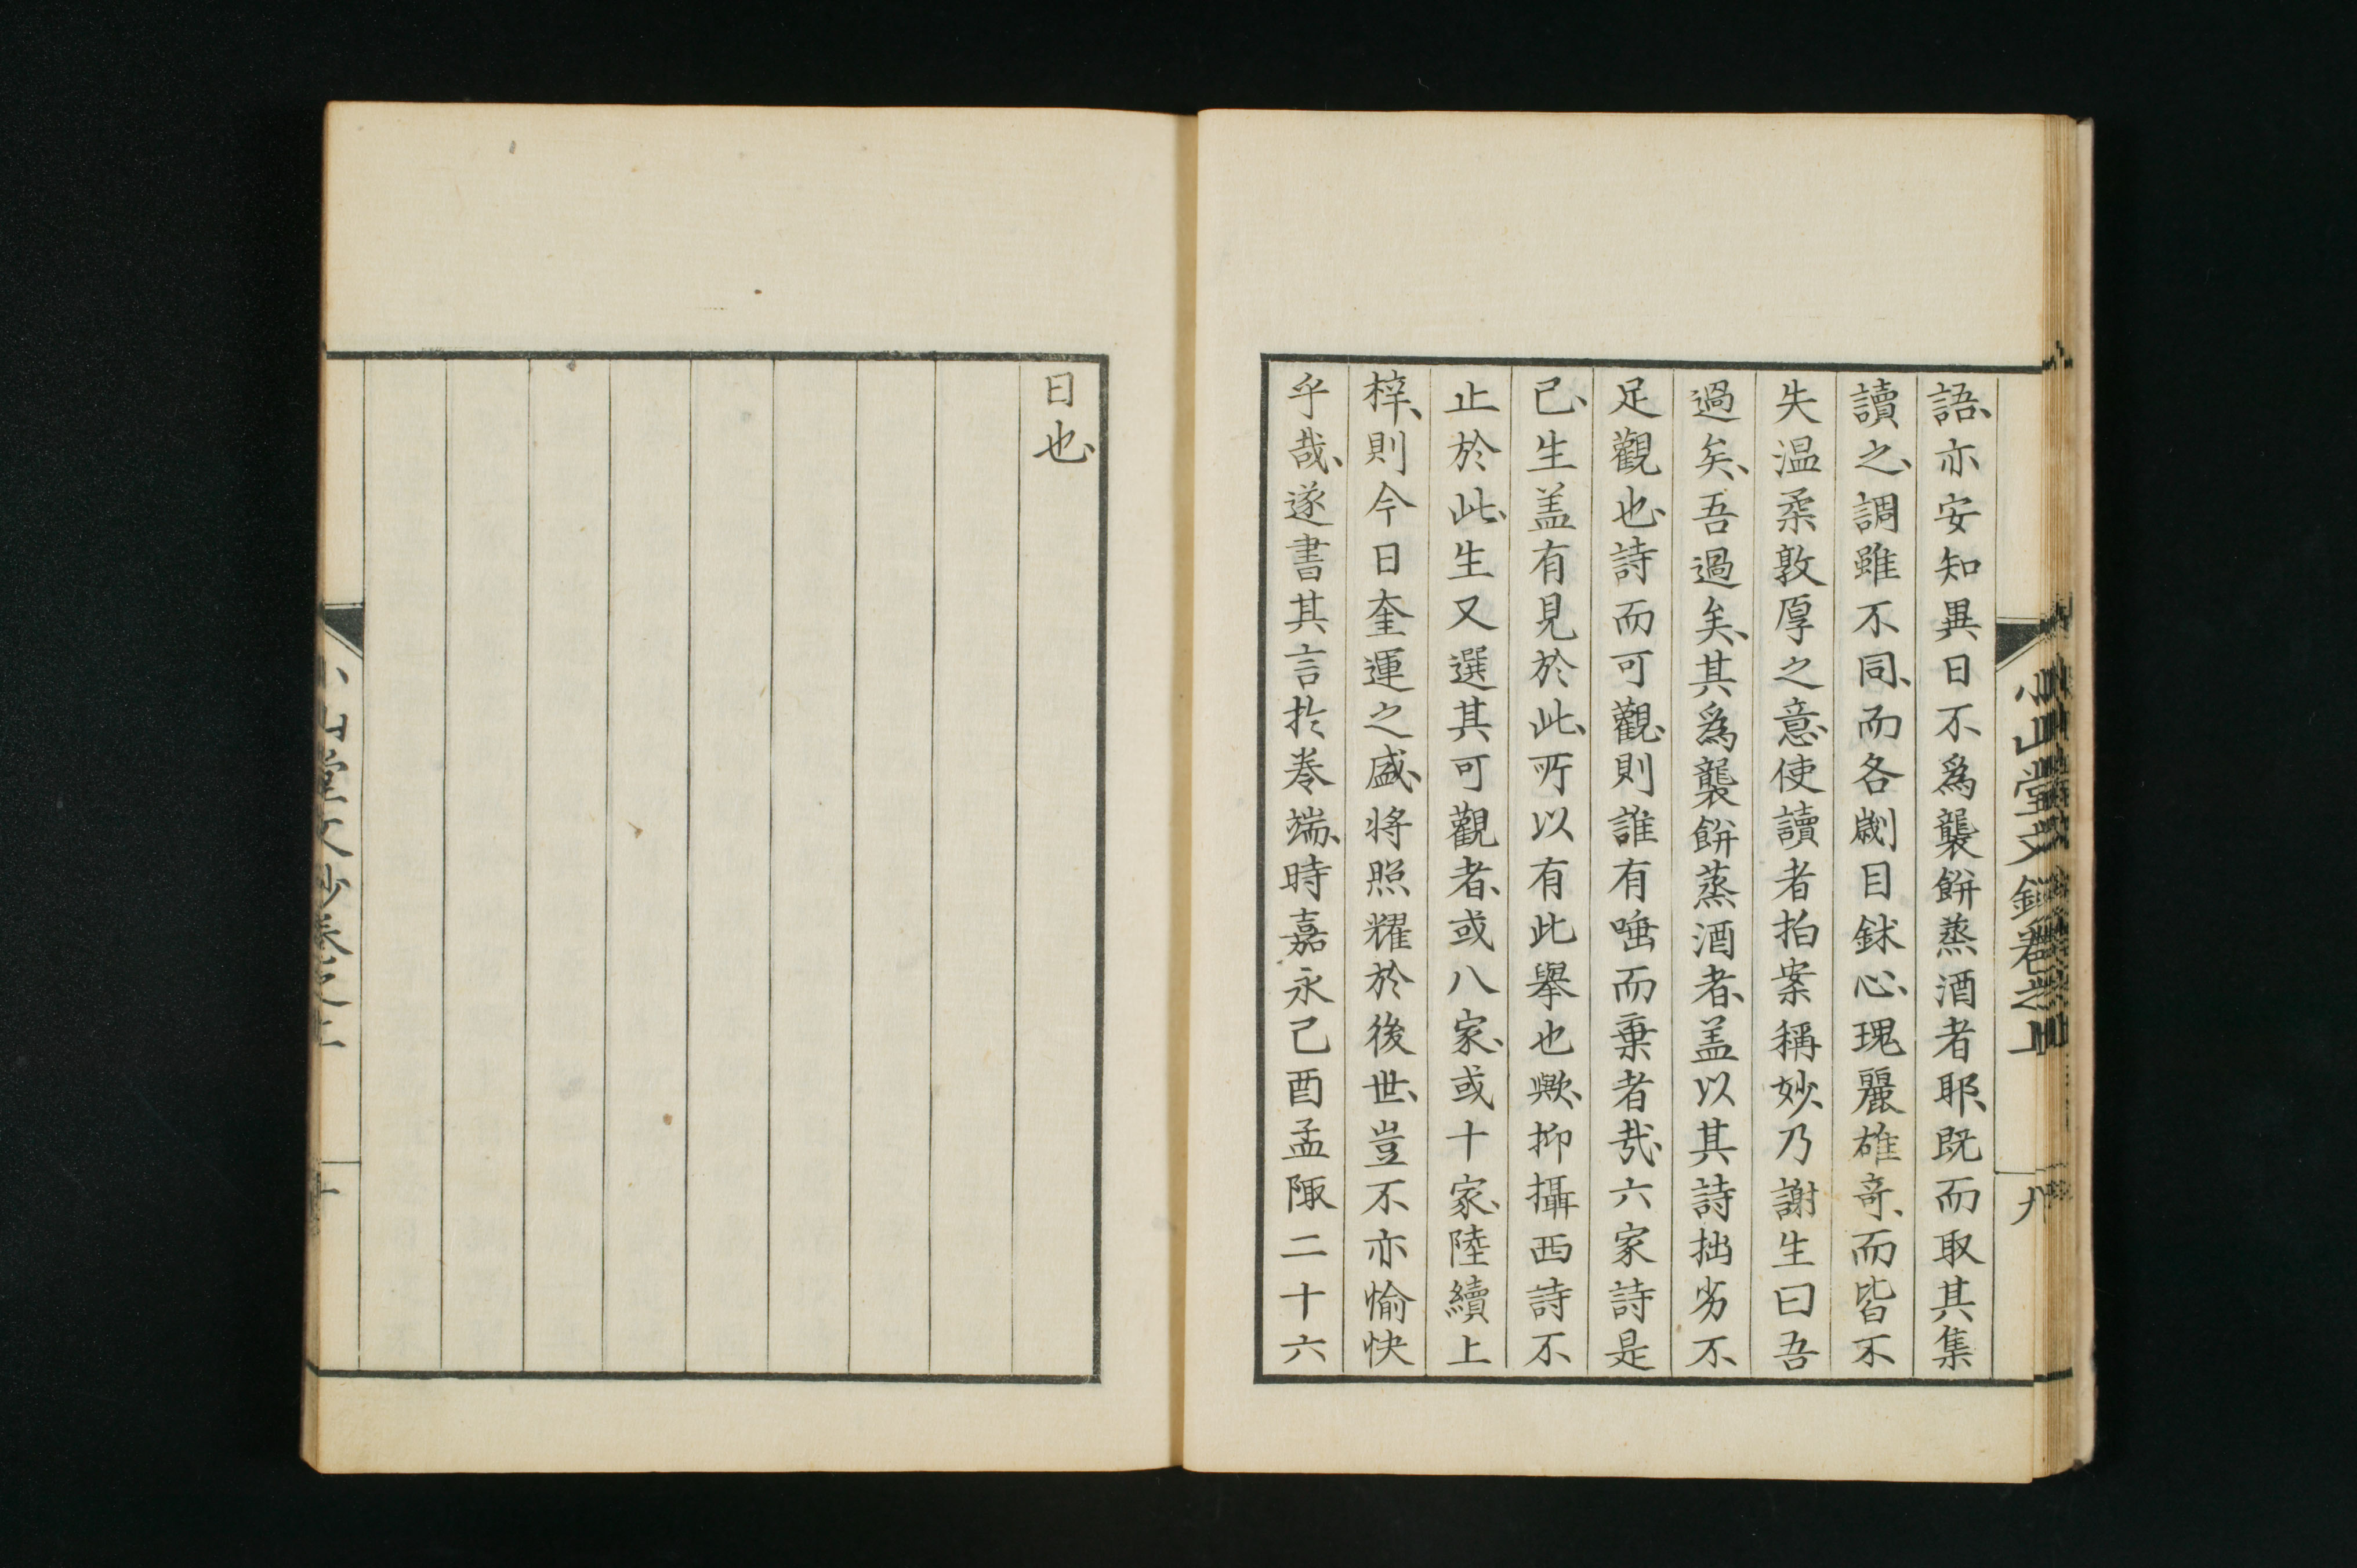 語、亦安知異日不爲襲餅蒸酒者耶、既而取其集
讀之、調雖不同、而各劌目鉥心、瑰麗雄奇、而皆不
失温柔敦厚之意、使讀者拍案稱妙、乃謝生曰吾
過矣、吾過矣、其爲襲餅蒸酒者、盖以其詩拙劣不、
足觀也、詩而可觀、則誰有唾而棄者哉、六家詩是
已、生盖有見於此、所以有此擧也歟、抑攝西詩不
止於此、生又選其可觀者、或八家、或十家、陸續上
梓、則今日奎運之盛、将照耀於後世、豈不亦愉快
乎哉、遂書其言於巻端、時嘉永己酉孟陬二十六
日也、
小山堂文鈔卷之上
九
小山堂文鈔卷之上
十